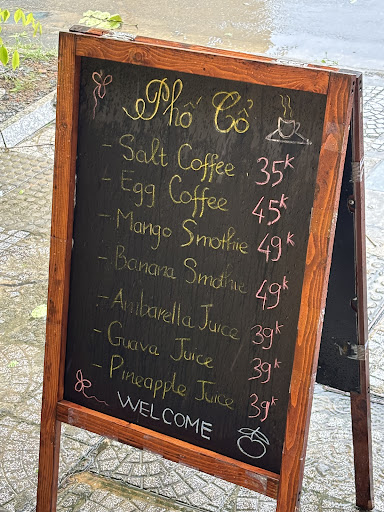 Phố Cổ
- Salt Coffee 35K
- Egg Coffee 45K
- Mango Smothie 49K
- Banana Smothie 49K
- Ambarella Juice 39K
- Guava Juice 39K
- Pineapple Juice 39K
WELCOME